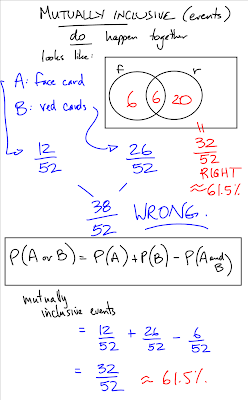 MUTUALLY INCLUSIVE (events)
do happen together
looks like:
f r
6 6 20
A: face card
B: red cards
12/52 26/52
=
32/52
RIGHT
≈ 61.5%
38/52 WRONG.
P(A or B) = P(A) + P(B) - P(A and B)
mutually
inclusive events
= 12/52 + 26/52 - 6/52
= 32/52 ≈ 61.5%